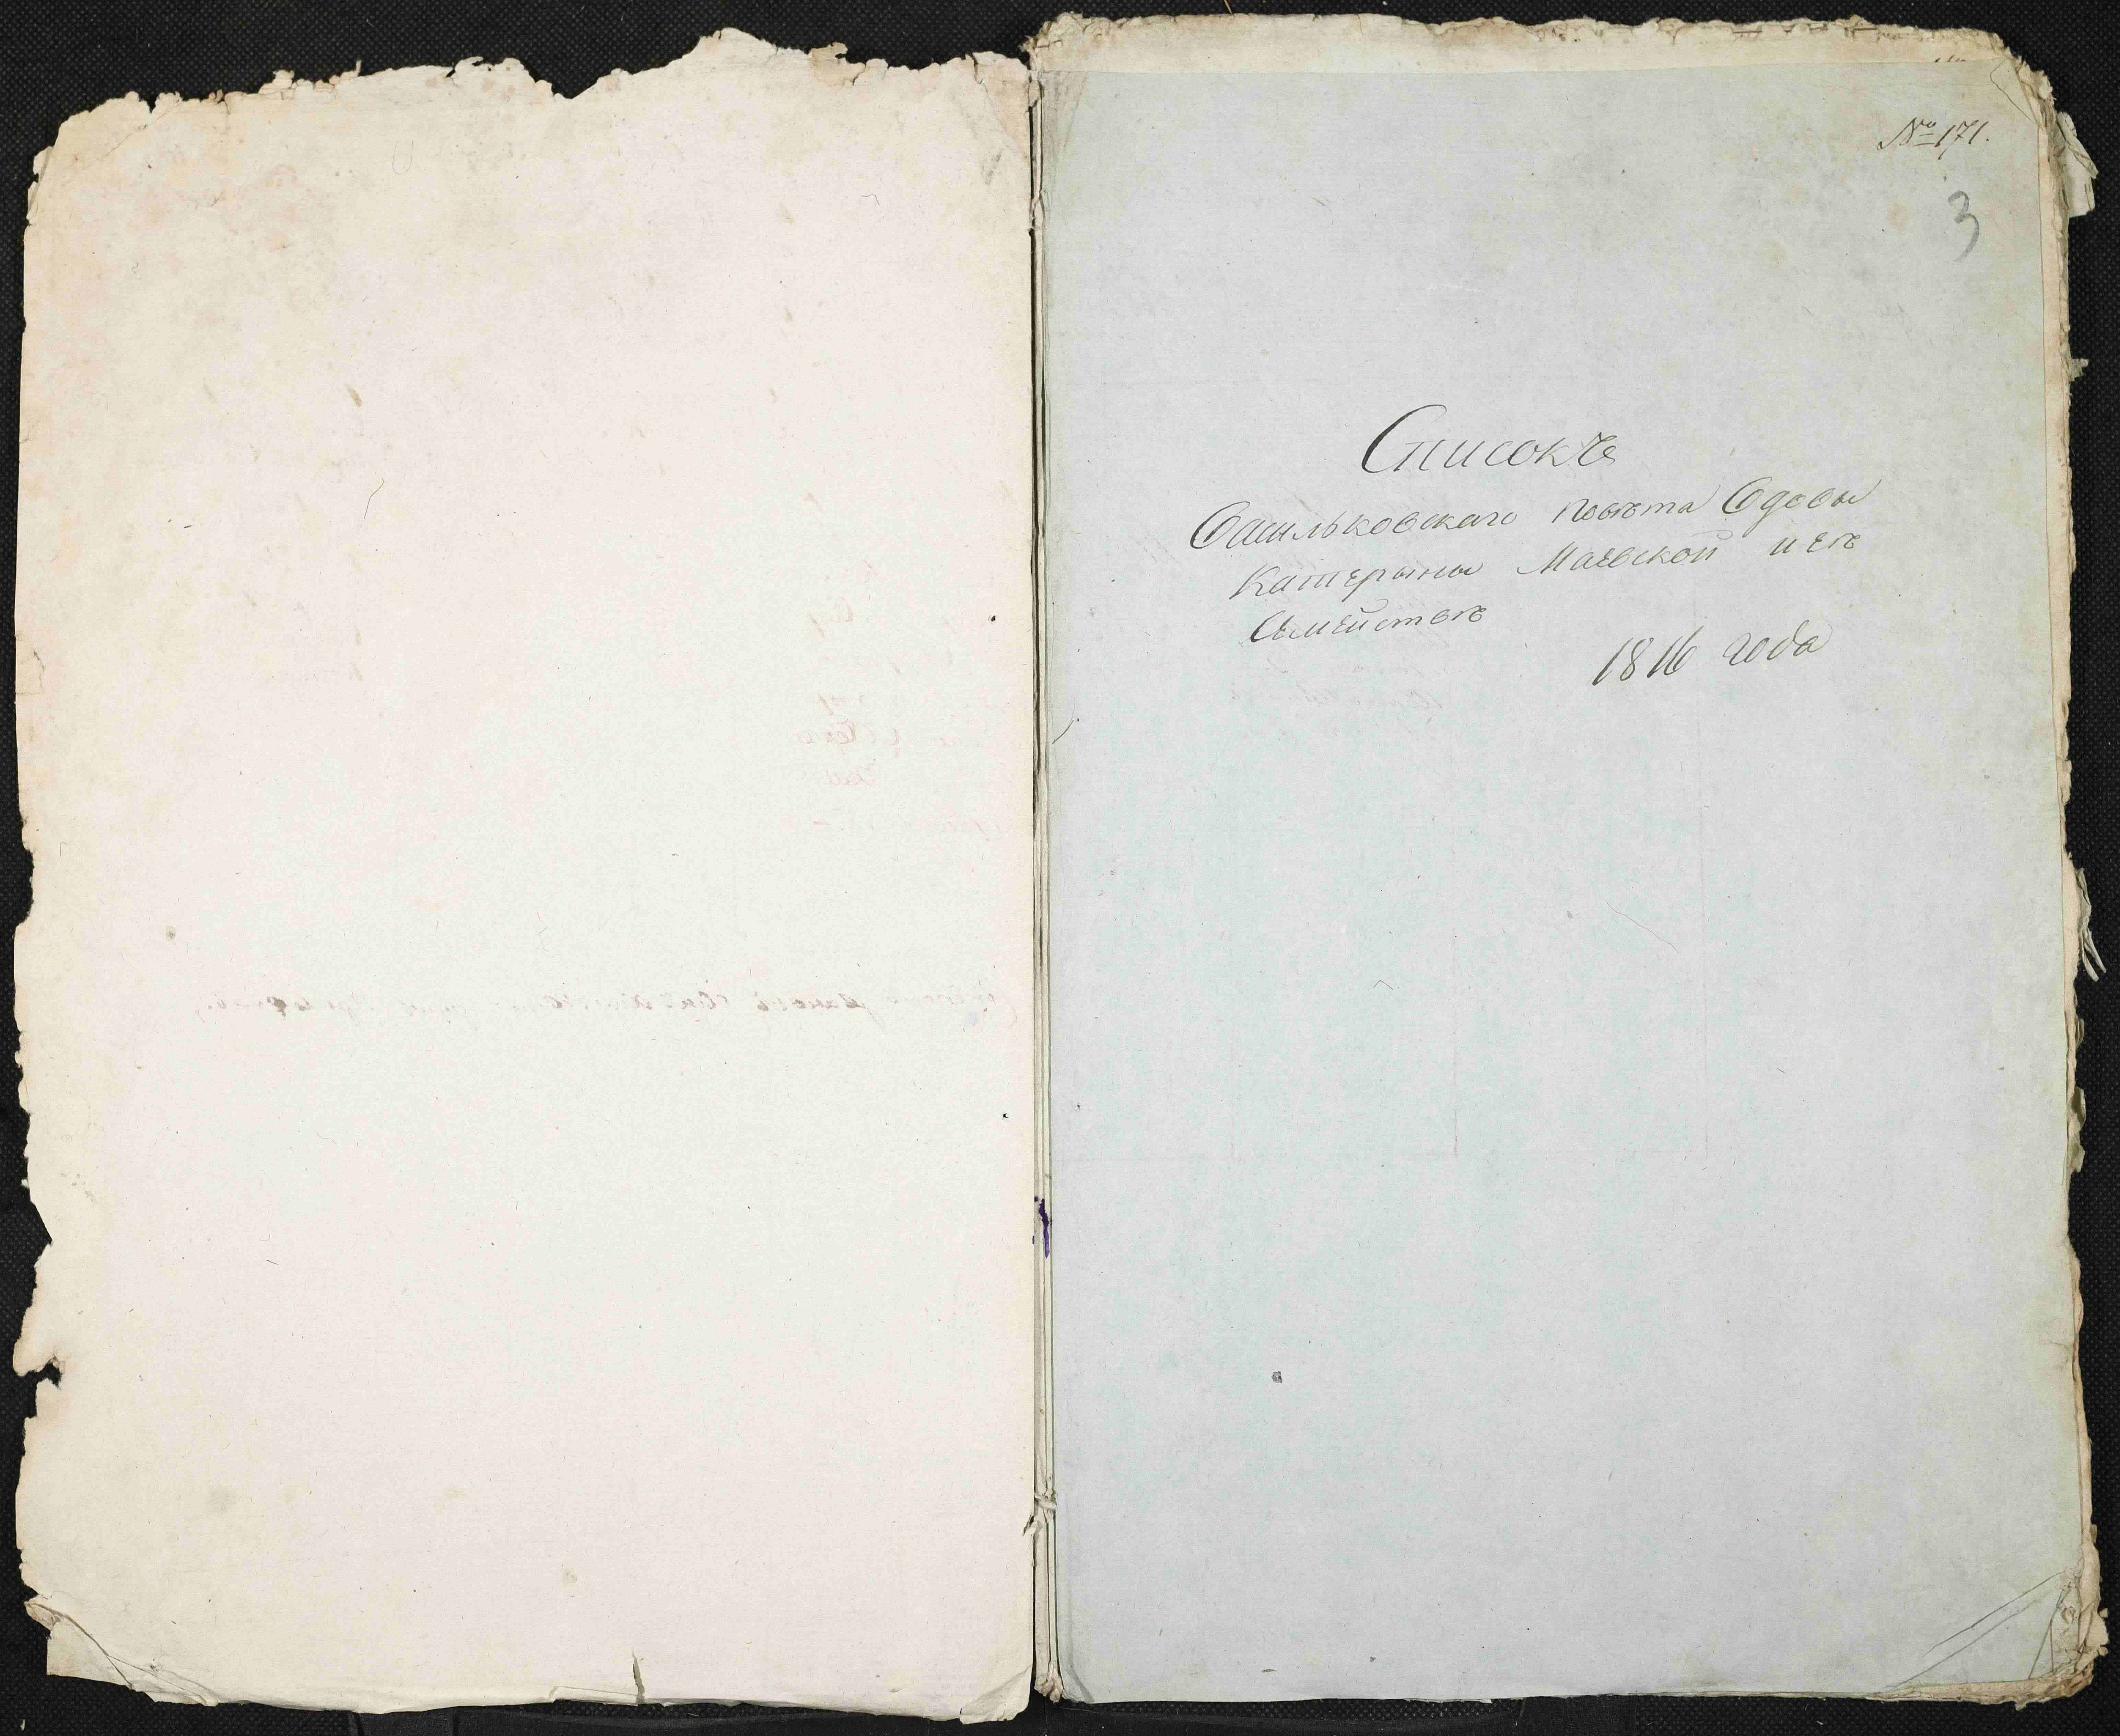 № 171.
3
Списокъ
Васильковского повѣта Вдовы
Катерыны Маевской и еѣ
Семействѣ
1816 года